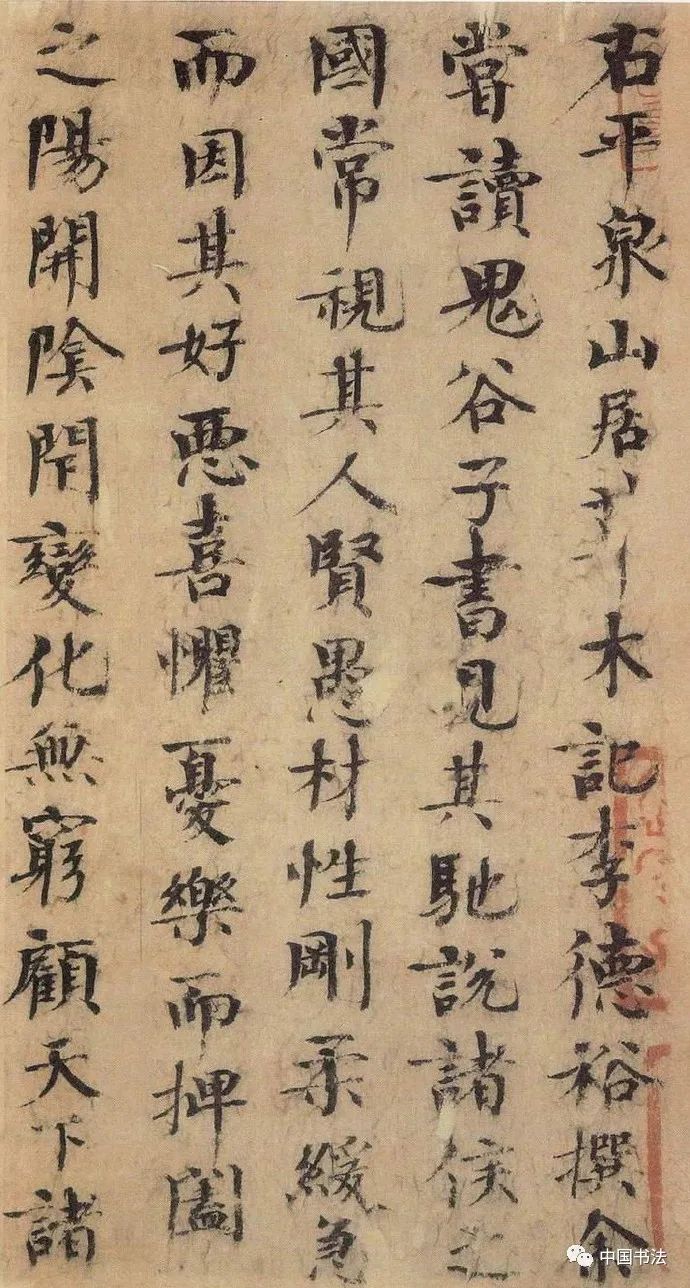 右平泉山居草木記李德裕撰余
嘗讀鬼谷子書見其馳說諸侯之
國常視其人賢愚材性剛柔緩急
而因其好惡喜懼憂樂而捭闔
之陽開陰閇變化無窮顧天下諸
中国书法